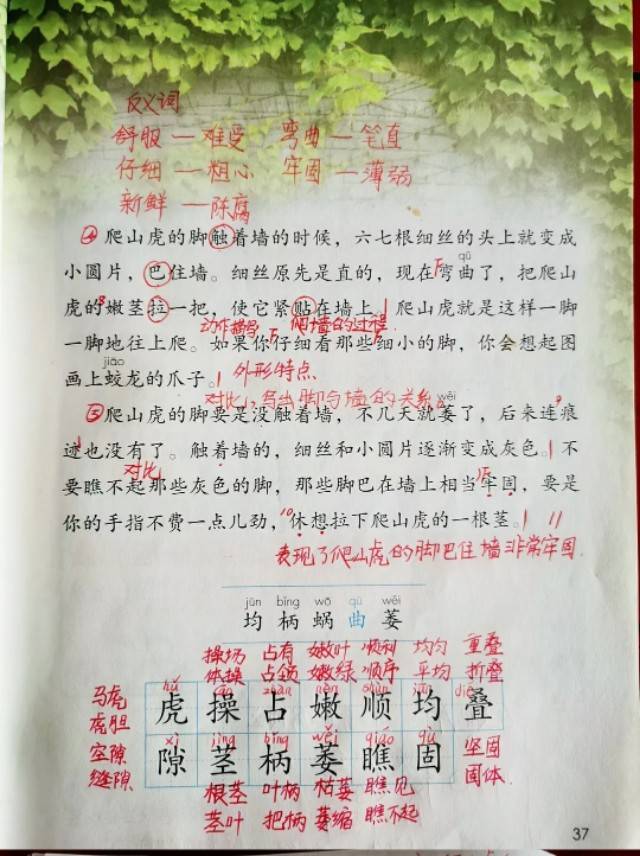 反义词
舒服—难受 弯曲—笔直
仔细—粗心 牢固—薄弱
新鲜—陈腐
④爬山虎的脚触着墙的时候，六七根细丝的头上就变成
qū
小圆片，巴住墙。细丝原先是直的，现在弯曲了，把爬山
虎的嫩茎拉一把，使它紧贴在墙上。爬山虎就是这样一脚
动作描写 爬墙的过程.
一脚地往上爬。如果你仔细看那些细小的脚，你会想起图
jiāo
画上蛟龙的爪子。 外形特点
对比，写出脚与墙的关系。 wěi
⑤爬山虎的脚要是没触着墙，不几天就萎了，后来连痕
迹也没有了。触着墙的，细丝和小圆片逐渐变成灰色。不
对比
要瞧不起那些灰色的脚，那些脚巴在墙上相当牢固，要是
你的手指不费一点儿劲，休想拉下爬山虎的一根茎。
表现了爬山虎的脚巴住墙非常牢固.
jūn bǐng wō qū wěi
均 柄 蜗 曲 萎
操场 占有 嫩叶 顺利 均匀 重叠
体操 占领 嫩绿 顺序 平均 折叠
马虎
虎胆
hǔ cāo zhàn nèn shùn jūn dié
虎 操 占 嫩 顺 均 叠
空隙
缝隙
xì jīng bǐng wěi qiáo gù
隙 茎 柄 萎 瞧 固
坚固
固体
根茎 叶柄 枯萎 瞧见
茎叶 把柄 萎缩 瞧不起
37